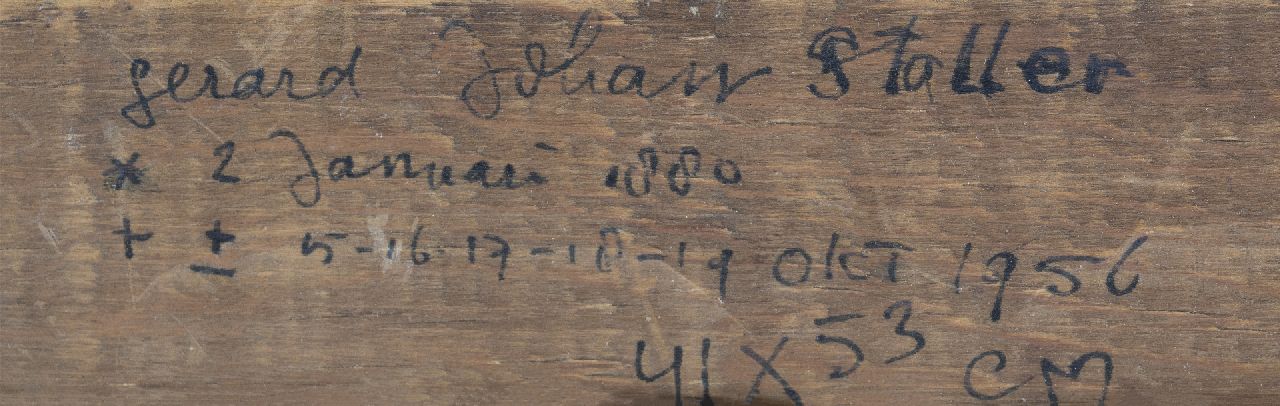 gerard Johan Staller
* 2 Januari 1880
+ ± 5-16-17-18-19 okt 1956
41 X 53 cM